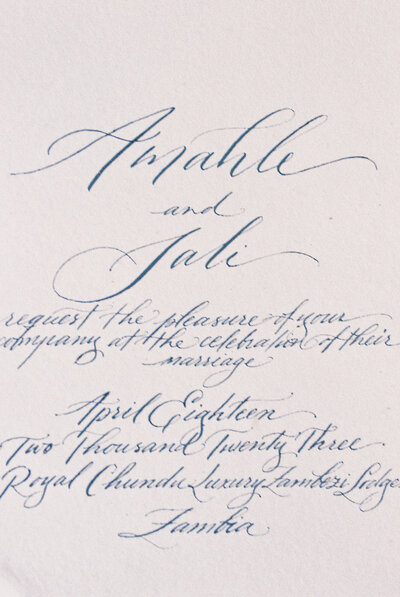 Amahle
and
Jali
request the pleasure of your
company at the celebration of their
marriage
April Eighteen
Two Thousand Twenty Three
Royal Chundu Luxury Zambezi Lodge
Zambia